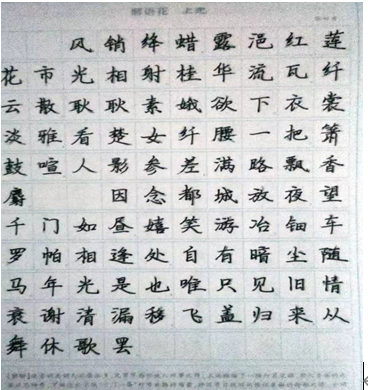 解语花 上元
风销绛蜡露浥红莲
花市光相射桂华流瓦纤
云散耿耿素娥欲下衣裳
淡雅看楚女纤腰一把箫
鼓喧人影参差满路飘香
麝 因念都城放夜望
千门如昼嬉笑游冶钿车
罗帕相逢处自有暗尘随
马年光是也唯只见旧情
衰谢清漏移飞盖归来从
舞休歌罢